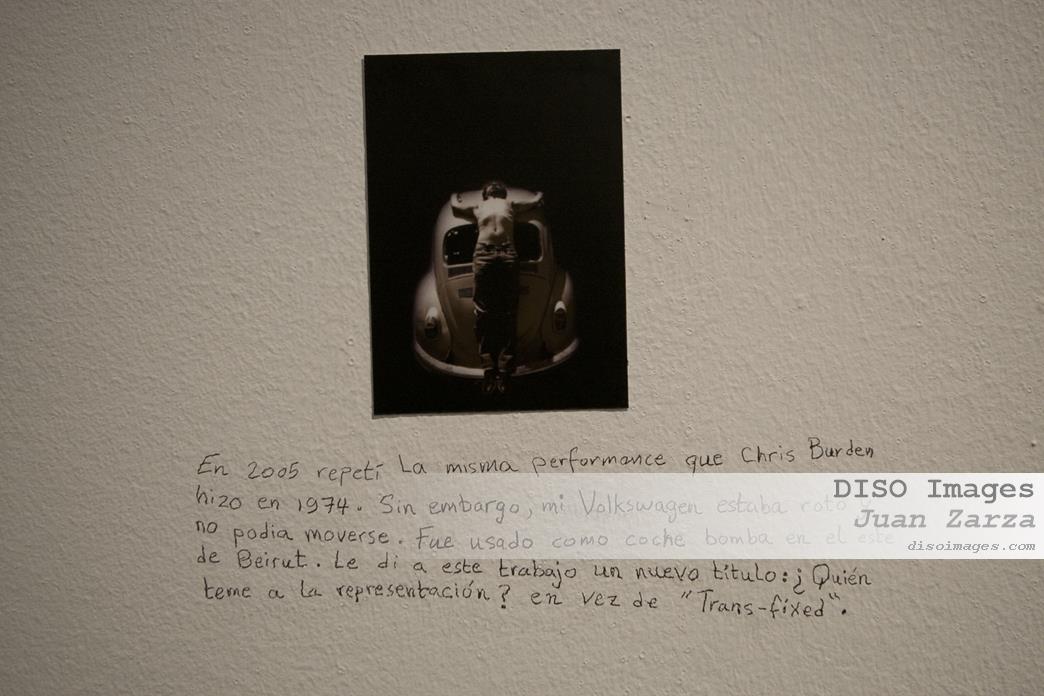 En 2005 repetí La misma performance que Chris Burden
hizo en 1974. Sin embargo, mi Volkswagen estaba roto y
no podia moverse. Fue usado como coche bomba en el este
de Beirut. Le di a este trabajo un nuevo título: ¿Quién
teme a la representación? en vez de "Trans-fixed".
DISO Images
Juan Zarza
disoimages.com